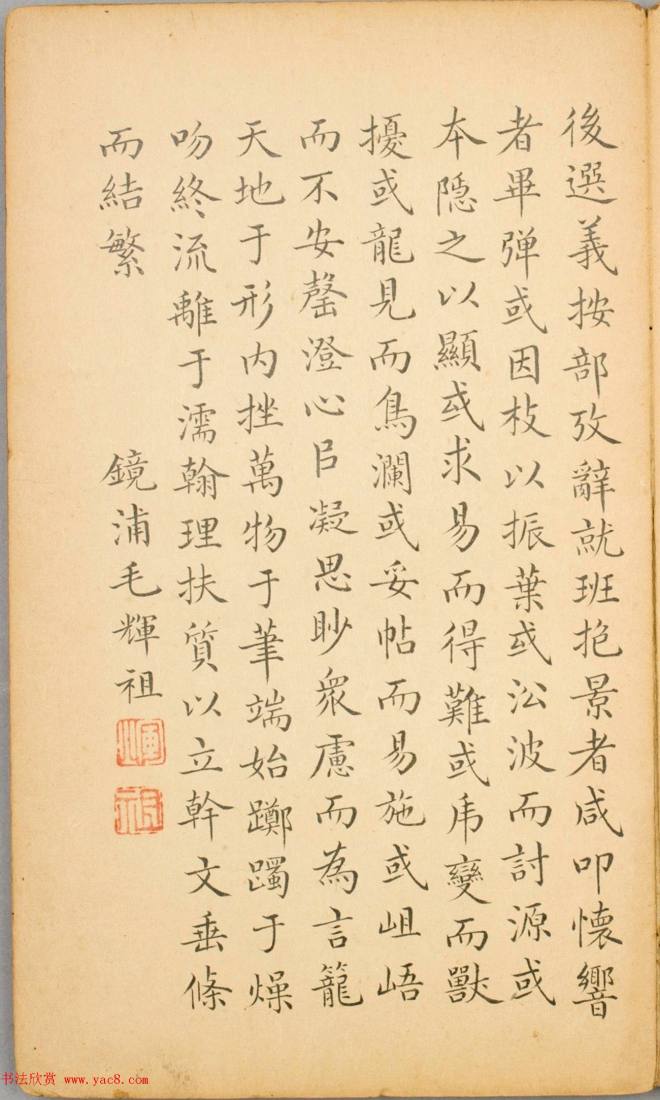 後選義按部攷辭就班抱景者咸叩懷響
者畢弹或因枝以振葉或㳂波而討源或
本隱之以顯或求易而得難或虎變而獸
擾或龍見而鳥瀾或妥帖而易施或岨峿
而不安罄澄心㠯凝思眇衆慮而為言籠
天地于形内挫萬物于筆端始躑躅于燥
吻終流離于濡翰理扶質以立幹文垂條
而結繁
鏡浦毛輝祖
輝
祖
书法欣赏 www.yac8.com